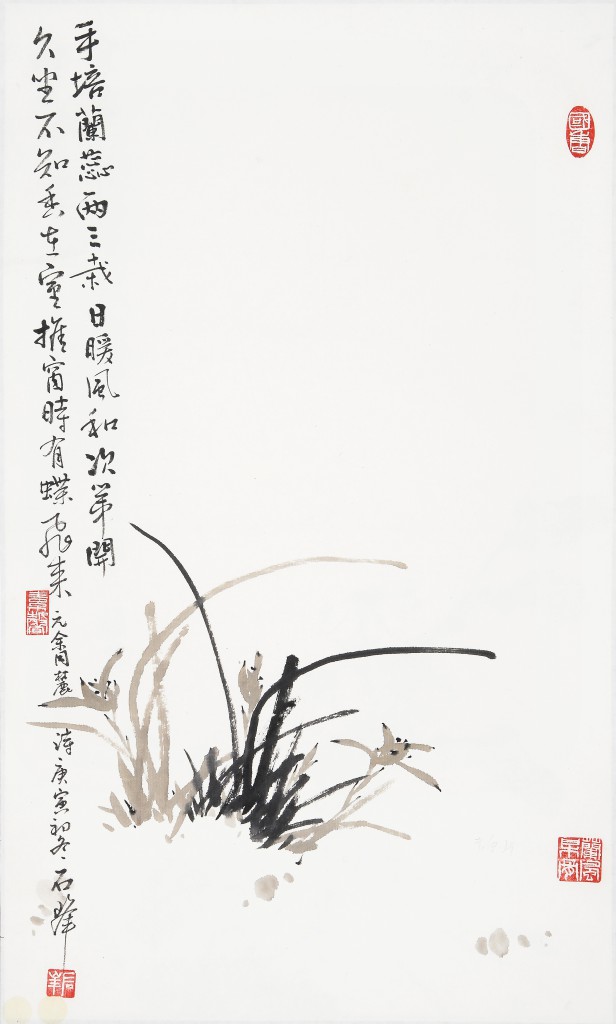 手培蘭蕊兩三栽日暖風和次第開
久坐不知香在室推窗時有蝶飛來元余同麓
詩庚寅初冬石峰
國香
石峰